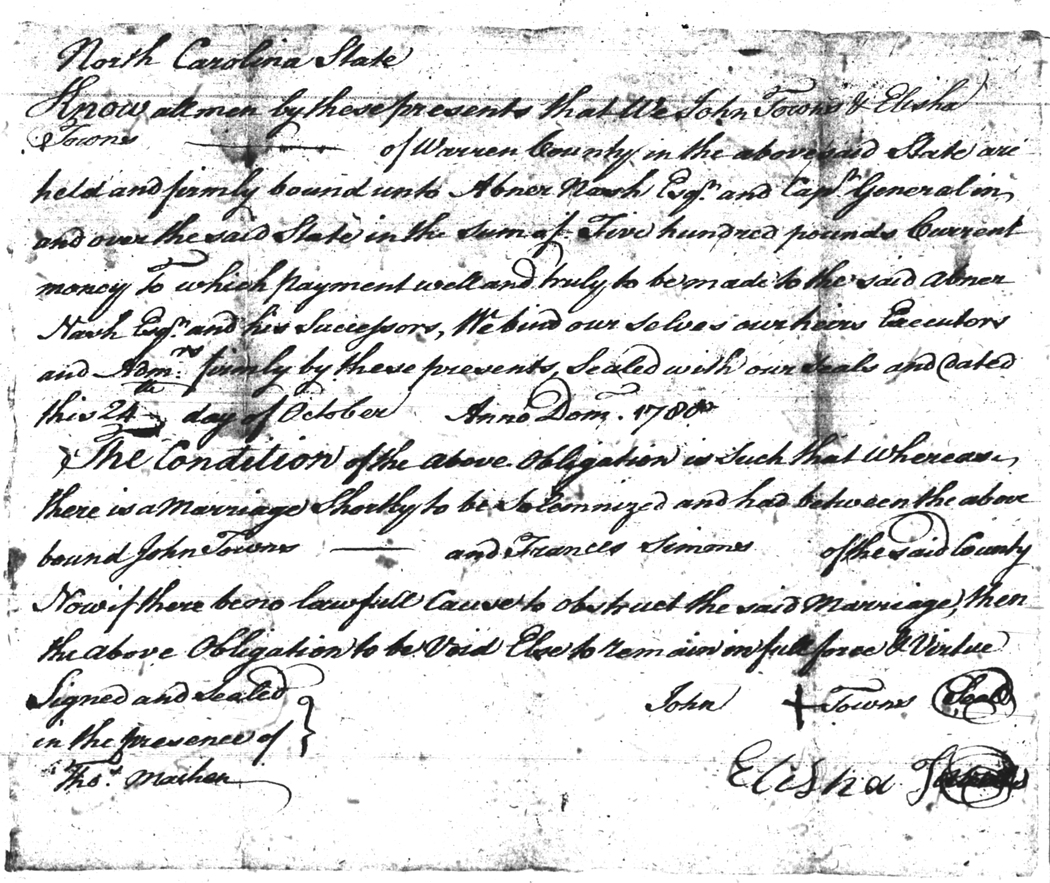 North Carolina State
Know all men by these presents that We John Towns & Elisha
Towns of Warren County in the abovesaid State are
held and firmly bound unto Abner Nash Esqr. and Capn. General in
and over the said State in the sum of Five hundred pounds Current
money To which payment well and truly to be made to the said Abner
Nash Esqr. and his Successors, We bind our selves our heirs Executors
and Admrs. firmly by these presents, Sealed with our Seals and dated
this 24th day of October Anno Dom. 1780
The Condition of the above Obligation is Such that Whereas
there is a Marriage Shortly to be Solemnized and had between the above
bound John Towns and Frances Simons of the said County
Now if there be no lawfull Cause to obstruct the said Marriage, then
the above Obligation to be Void Else to remain in full force & Virtue
Signed and Sealed John + Towns Seal
in the presence of
Thos. Machen
Elisha Towns